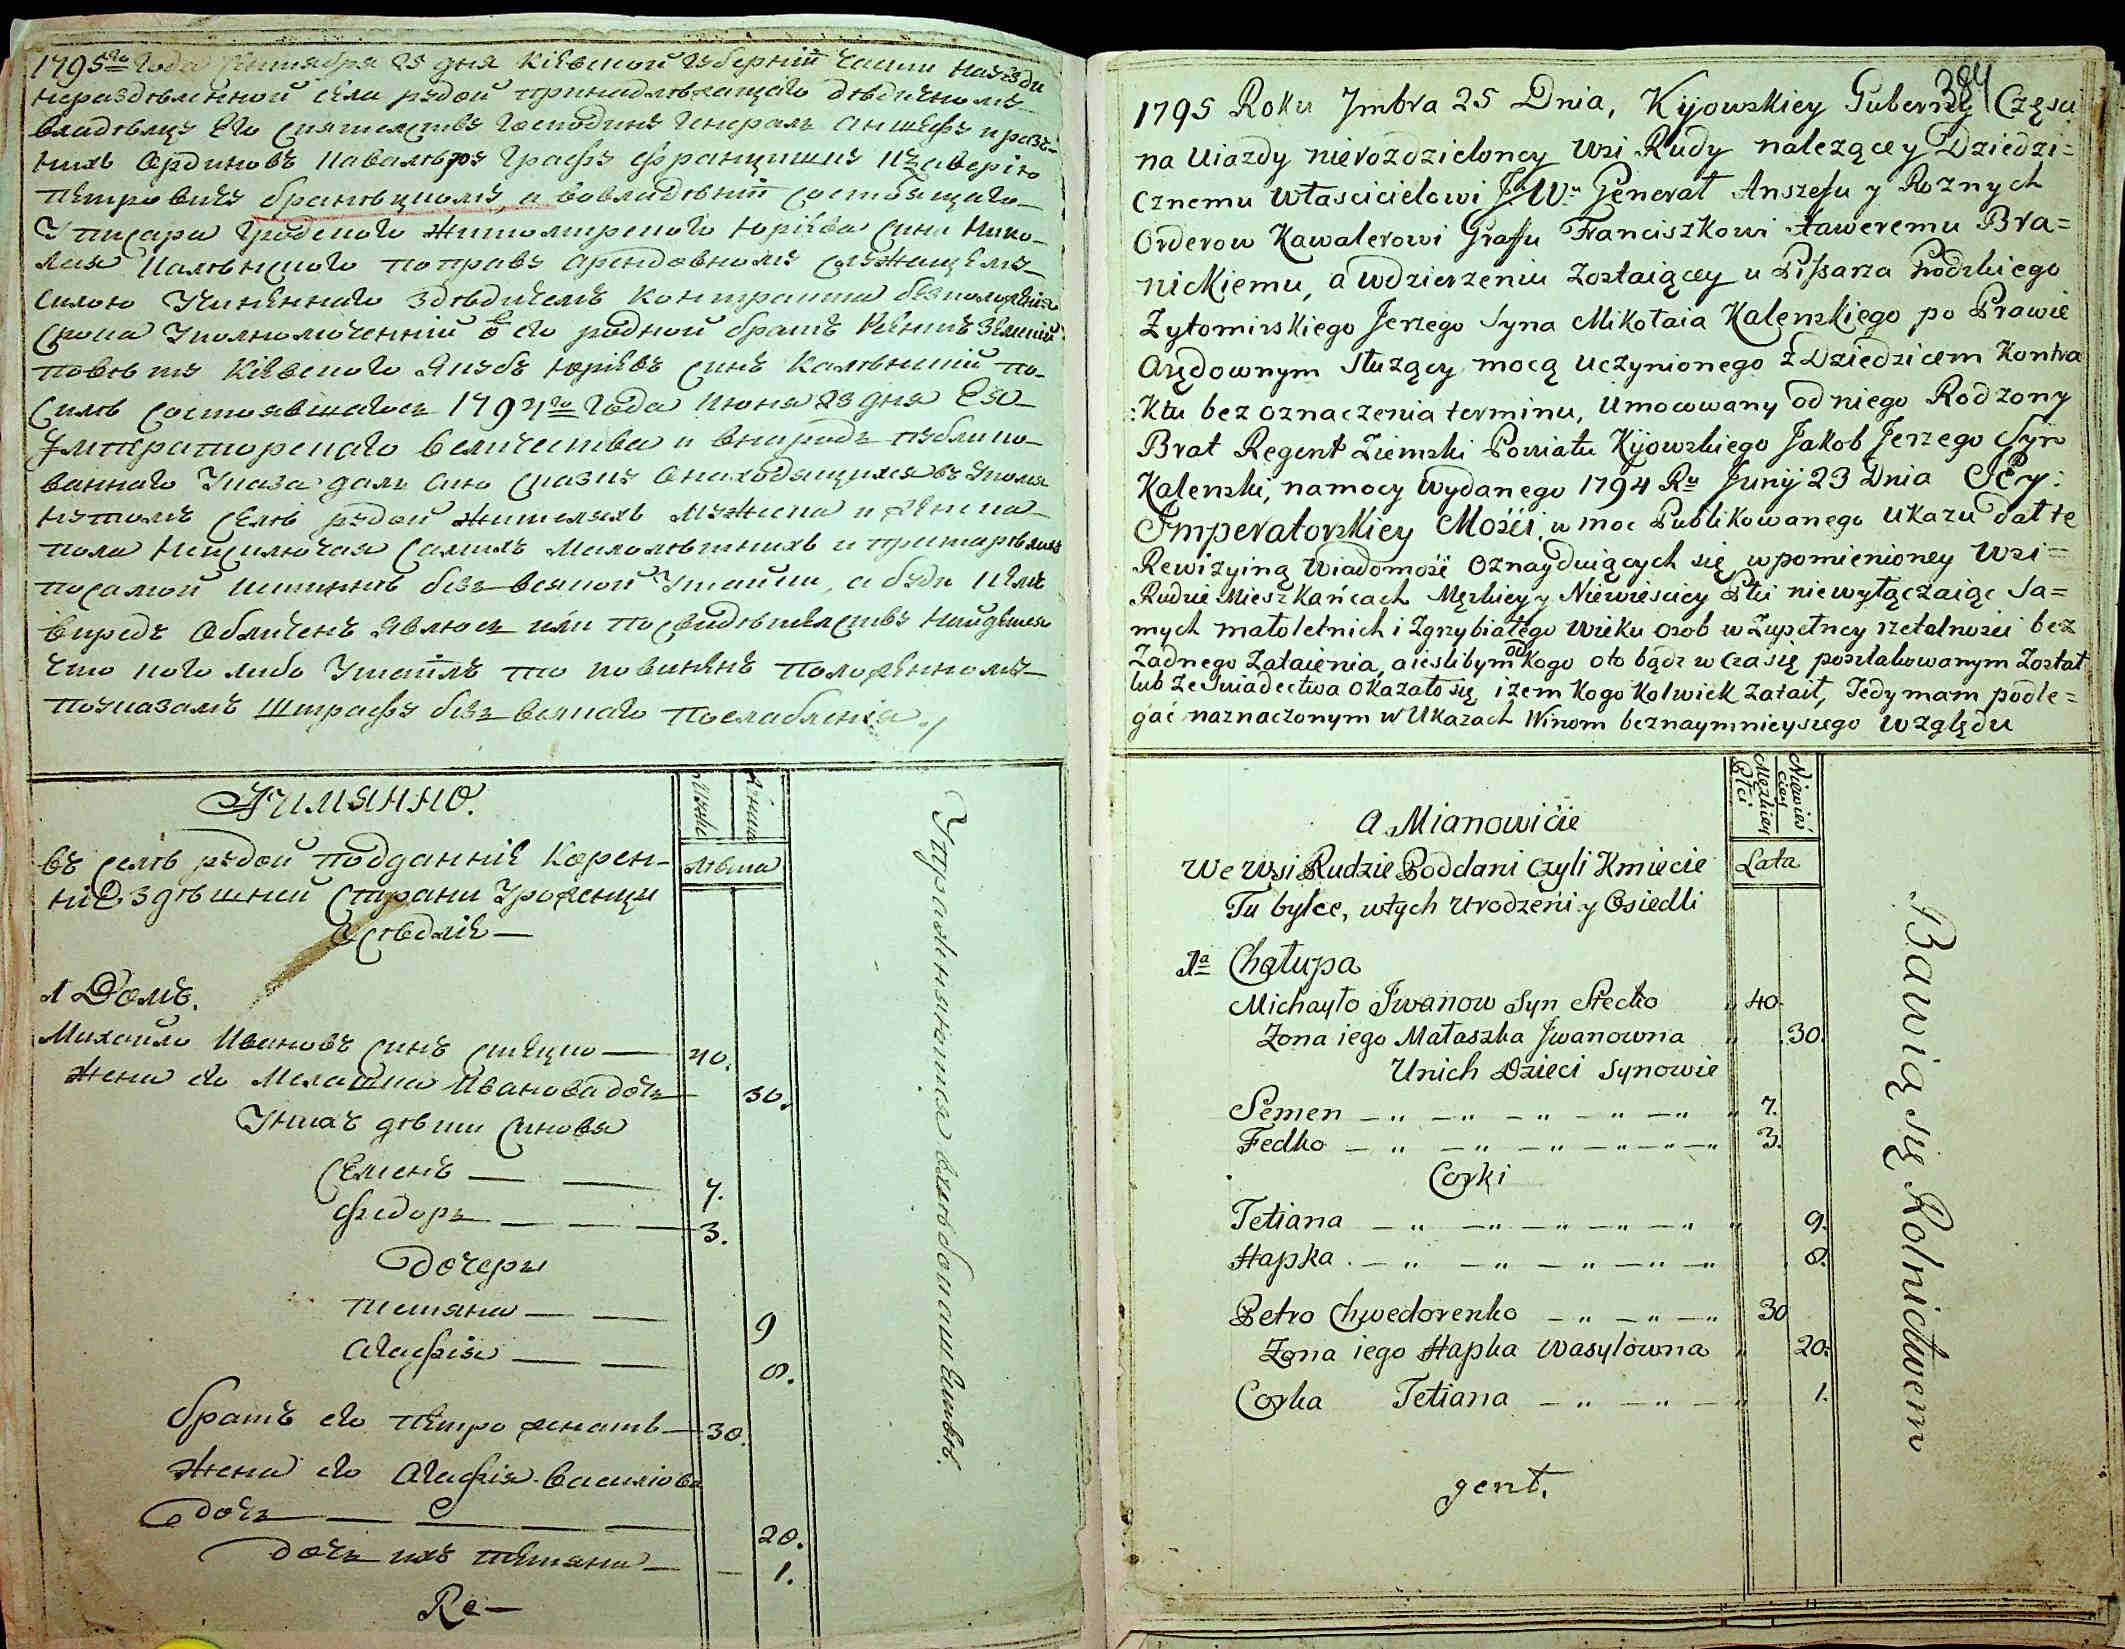 1795го года Сентября 25 дня Кіевской губерніи части науезди
нераздѣленной села рудой принадлѣжащаго дѣдичному
владѣлцу Его Сиятелству Господину Генералъ Аншефу и раз-
нихъ Ординовъ Кавалѣру Графу Францишку Ксаверію
Петровичу браницкому, а вовладѣніи состоящаго
Уписара Гродского Житомирского Юріева сина Нико-
лая Каленского поправу арендовному служащему
силою Учиненнаго здѣдичемъ контракта безположенія
срока Уполномоченній от его родной братъ Регентъ Земскій
повѣту Кіевского Якубъ Юріевъ синъ Калѣнскій по
силѣ состоявшагось 1794го года Июня 23 дня Ея
Императорскаго Величества и внародъ публико-
ваннаго Указа далъ сию сказку Онаходящихся въ упомя
нутомъ селѣ рудой жителяхъ мужеска и женска
пола неисключая самихъ малолѣтнихъ и притарѣлихъ
посамой истиннѣ безъ всякой Утайки, а буди кемъ
впредь обличенъ явлюсь или по свидѣтелству найдется
что кого либо Утаилъ то повиненъ положенному
поуказамъ штрафу безъ всякаго послабленія ./
Муже
Женска
Аимянно.
лѣта
въ селѣ рудой подданніе корен-
ніе здѣшней страни Уроженци
Осѣдліе —
1 Домъ.
Михайло Ивановъ синъ Стецко — 40.
жена его Малашка Иванова дочь — 30.
Унихъ дѣти синовя
Семенъ — — 7.
Федоръ — — — 3.
дочеры
тетяна — — 9
Агафія — — 8.
братъ его петро женатъ — 30.
жена его Агафія Василіова
дочь — — — — 20.
дочь ихъ тетяна — — 1.
Re—
Упражняются вхлѣбопашествѣ.
384
1795 Roku Jmbra 25 Dnia, Kijowskiey Gubernij Częsci
na Uiazdy nierozdzieloney Wsi Rudy nalezącey Dziedzi=
cznemu Własciciełowi J: W: Generał Anszefu y Roznych
Orderow Kawalerowi Graffu Franciszkowi Xaweremu Bra=
nickiemu, a wdzierzeniu Zostaiącey u Pissarza Grodzkiego
Zytomirskiego Jerzego Syna Mikołaia Kalenskiego po Prawie
Arędownym Służący mocą uczynionego z Dziedzicem Kontra
:Ktu bez oznaczenia terminu, Umocowany od niego Rodzony
Brat Regent Ziemski Powiatu Kijowskiego Jakob Jerzego Syn
Kalenski, namocy wydanego 1794 Ru Junij 23 Dnia JEy:
Imperatorskiey Mości, w moc Publikowanego Ukazu dał te
Rewizyiną Wiadomość Oznayduiących się wpomienioney Wsi=
Rudzie Mieszkańcach Męzkiey y Niewiesciey Płci niewyłączaiąc Sa=
mych małoletnich i Zgrzybiałego Wieku Osob w Zupełney rzetelnosci bez
Zadnego Zataienia, a iesłibym od Kogo oto bądz w Czasię poszlakowanym Został
lub ze Swiadectwa Okazało się, izem Kogo Kolwiek zataił, Tedy mam podle=
gać naznaczonym w Ukazach Winom beznaymnieyszego Względu
Męzkiey
Płci
Niewies
ciey
A Mianowicie
Lata
We Wsi Rudzie Poddani czyli Kmiecie
Tu bylce, wtych Urodzeni y Osiedli
1a Chałupa
Michayło Iwanow Syn Stecko „ 40.
Zona iego Małaszka Iwanowna „ 30.
Unich Dzieci Synowie
Semen — „ — „ — „ — „ — „ „ 7.
Fedko — „ — „ — „ — „ — „ — „ 3.
Corki
Tetiana — „ — „ — „ — „ — „ „ 9.
Hapka . — „ — „ — „ — „ — „ 8.
Petro Chwedorenko — „ — „ — „ 30
Zona iego Hapka Wasylowna „ 20.
Corka Tetiana — „ — „ — „ 1.
gent.
Bawią się Rolnictwem